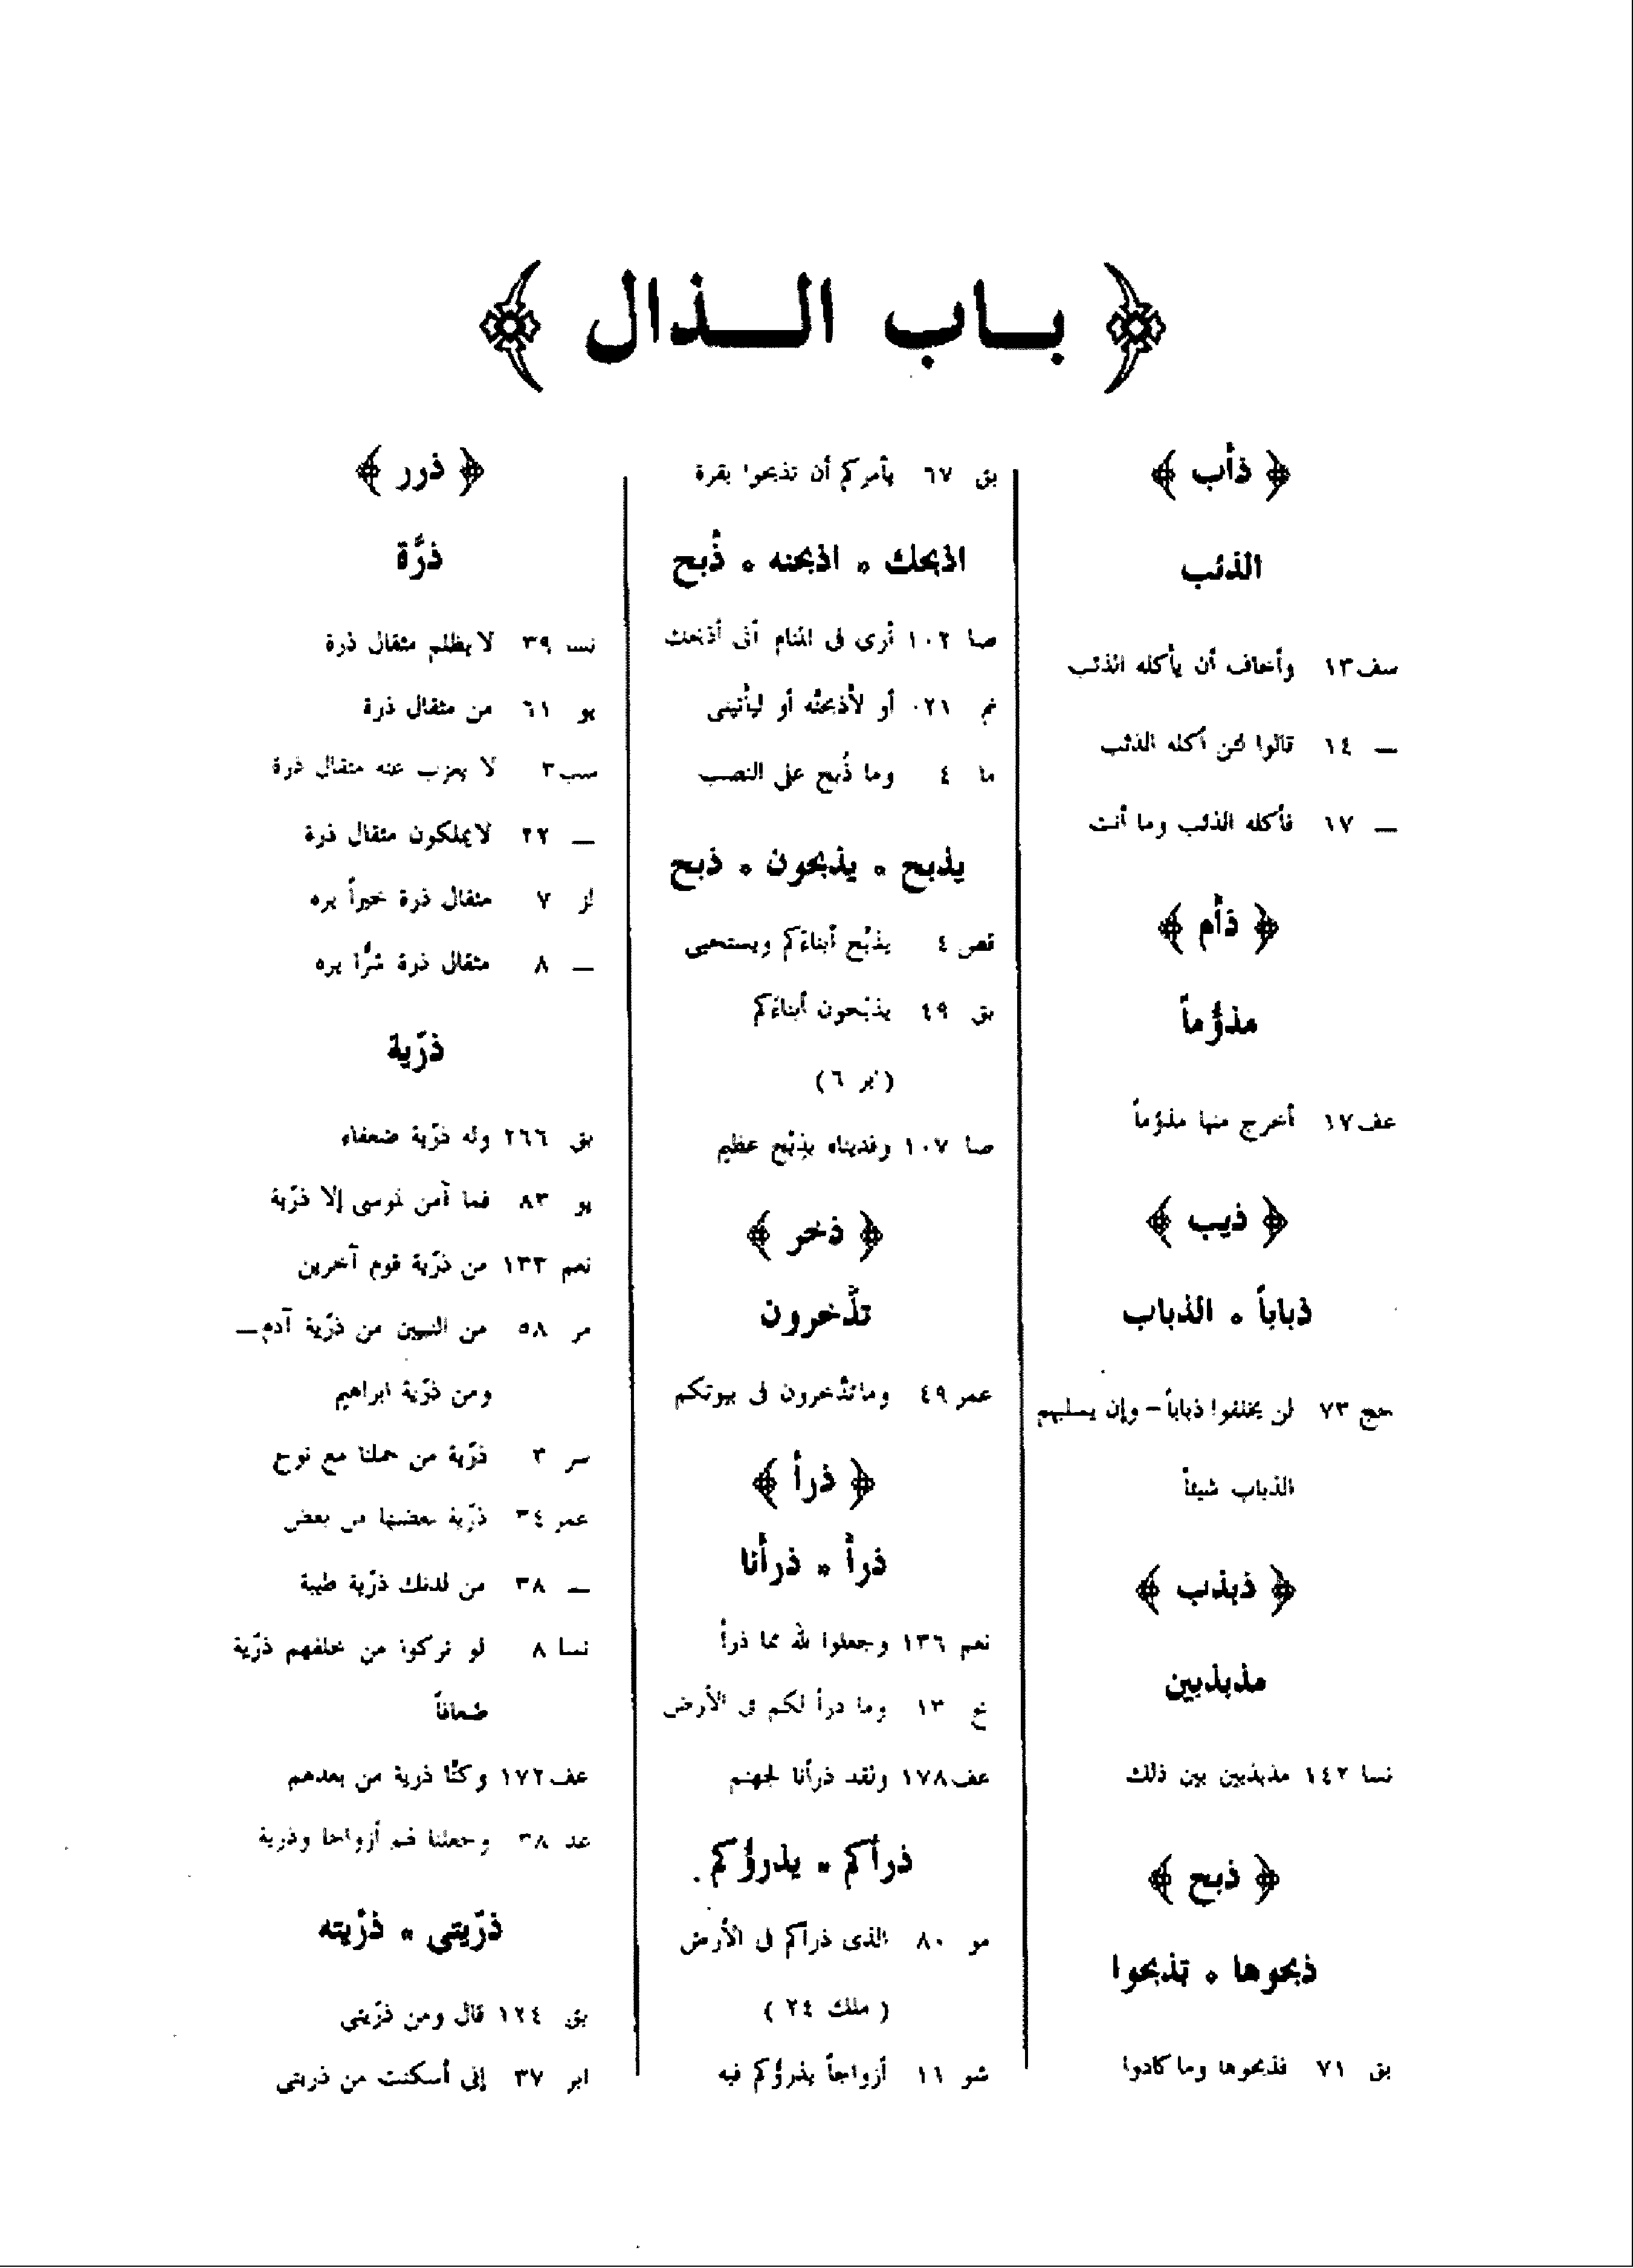 ﴿ بـاب الـذال ﴾
﴿ ذأب ﴾
الذئب
سف ١٣ وأخاف أن يأكله الذئب
— ١٤ قالوا لئن أكله الذئب
— ١٧ فأكله الذئب وما أنت
﴿ ذأم ﴾
مذؤماً
عف ١٧ أخرج منها مذؤماً
﴿ ذيب ﴾
ذباباً ٠ الذباب
حج ٧٣ لن يخلقوا ذباباً – وإن يسلبهم
الذباب شيئاً
﴿ ذبذب ﴾
مذبذبين
نسا ١٤٢ مذبذبين بين ذلك
﴿ ذبح ﴾
ذبحوها ٠ تذبحوا
بق ٧١ فذبحوها وما كادوا
بق ٦٧ يأمركم أن تذبحوا بقرة
اذبحك ٠ اذبحنه ٠ ذُبح
صا ١٠٢ أرى فى المنام أنى أذبحك
نم ٠٢١ أو لأذبحنّه أو ليأتينى
ما ٤ وما ذُبح على النصب
يذبح ٠ يذبحون ٠ ذبح
قص ٤ يذبّح أبناءكم ويستحيى
بق ٤٩ يذبّحون أبناءكم
(ابر ٦)
صا ١٠٧ وفديناه بذِبْح عظيم
﴿ ذخر ﴾
تدَّخرون
عمر ٤٩ وما تدّخرون فى بيوتكم
﴿ ذرأ ﴾
ذرأ ٠ ذرأنا
نعم ١٣٦ وجعلوا لله مما ذرأ
نح ١٣ وما ذرأ لكم فى الأرض
عف ١٧٨ ولقد ذرأنا لجهنم
ذرأكم ٠ يذرؤكم
مو ٨٠ الذى ذرأكم فى الأرض
( ملك ٢٤ )
شو ١١ أزواجاً يذرؤكم فيه
﴿ ذرر ﴾
ذرَّة
نسا ٣٩ لا يظلم مثقال ذرة
يو ٦١ من مثقال ذرة
سب ٣ لا يعزب عنه مثقال ذرة
— ٢٢ لا يملكون مثقال ذرة
لز ٧ مثقال ذرة خيراً يره
— ٨ مثقال ذرة شرًّا يره
ذرّية
بق ٢٦٦ وله ذرّية ضعفاء
يو ٨٣ فما آمن لموسى إلا ذرّية
نعم ١٣٣ من ذرّية قوم آخرين
مر ٥٨ من النبيين من ذرّية آدم—
ومن ذرّية ابراهيم
سر ٣ ذرّية من حملنا مع نوح
عمر ٣٤ ذرّية بعضها من بعض
— ٣٨ من لدنك ذرّية طيبة
نسا ٨ لو تركوا من خلفهم ذرّية
ضعافاً
عف ١٧٢ وكنّا ذرية من بعدهم
عد ٣٨ وجعلنا لهم أزواجا وذرية
ذرّيتى ٠ ذرّيته
بق ١٢٤ قال ومن ذرّيتى
ابر ٣٧ إنى أسكنت من ذريتى